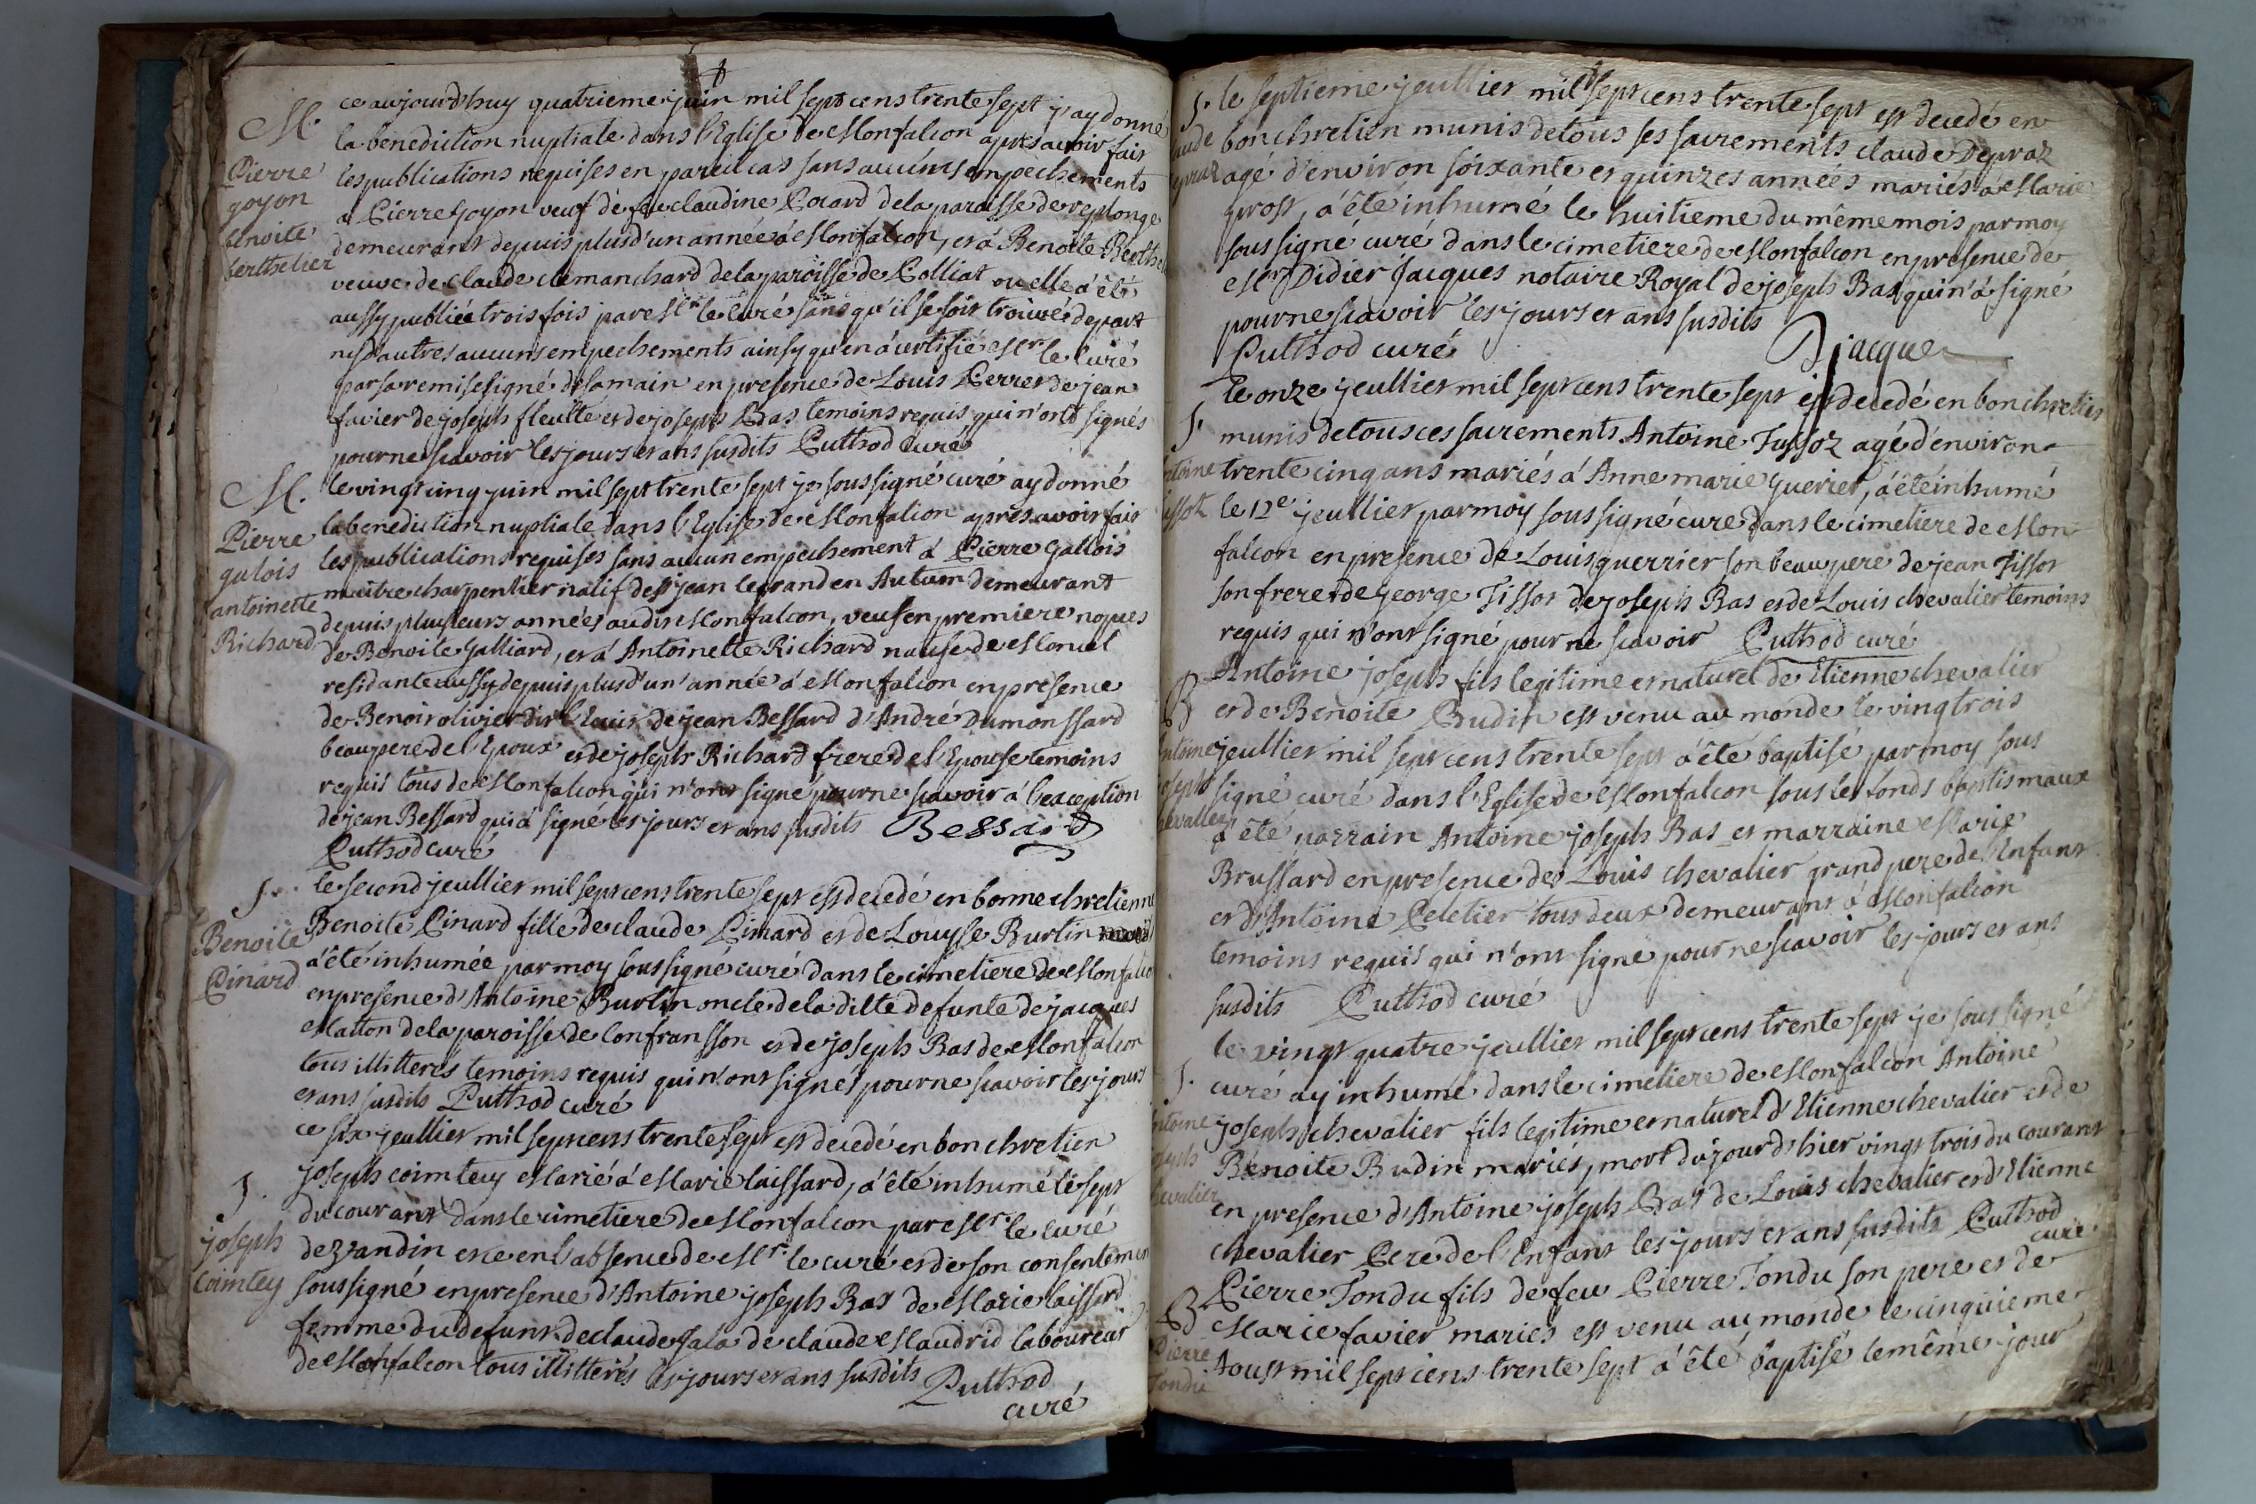 M.
Pierre
goyon
benoite
berthelier
ce aujourd'huy quatrieme juin mil sept cens trente sept j'ay donné
la benediction nuptiale dans l'Eglise de Monfalcon apres avoir fait
les publications requises en pareil cas sans aucuns empechements
a Pierre Goyon veuf de feue claudine Cocard de la paroisse de replonge
demeurant depuis plus d'un année à Monfalcon, et à Benoite Berthel
veuve de Claude demanchard de la paroisse de Polliat ou elle a été
aussy publiée trois fois par Mr le curé sans qu'il se soit trouvé de part
ny d'autres aucuns empechements ainsy qu'en a certifié Mr le curé
par sa remise signé de sa main en presence de Louis Perret de jean
favier de joseph fleulté et de joseph Bas temoins requis qui n'ont signés
pour ne scavoir les jours et ans susdits Puthod curé
M.
Pierre
galois
antoinette
Richard
le vingt cinq juin mil sept trente sept je soussigné curé ay donné
la benediction nuptiale dans l'Eglise de Monfalcon apres avoir fait
les publications requises sans aucun empechement à Pierre Gallois
maitre charpentier natif de St jean le grand en Autum demeurant
depuis plusieurs années audit Monfalcon, veuf en premiere nopces
de Benoite Galliard, et à Antoinette Richard natife de Moncel
residante aussy depuis plus d'un année à Monfalcon en presence
de Benoit olivier de jean Bessard d'André Dumonssard
beaupere de l'Epoux et de joseph Richard frere de l'Epouse temoins
requis tous de Monfalcon qui n'ont signe pour ne scavoir à l'exception
de jean Bessard qui a signé les jours et ans susdits Bessard
Puthod curé
S.
Benoite
Pinard
le second jeullier mil sept cens trente sept est decedé en bonne chretienne
Benoite Pinard fille de claude Pinard et de Louyse Burlin
a été inhumée par moy soussigné curé dans le cimetiere de Monfalco
en presence d'Antoine Burlin oncle de la ditte defunte de jacques
Matton de la paroisse de Confransson et de joseph Bas de Monfalcon
tous illitterés temoins requis qui n'ont signés pour ne scavoir les jours
et ans susdits Puthod curé
S.
joseph
Cointey
ce six jeullier mil sept cens trente sept est decedé en bon chretien
joseph cointey Marié à Marie laissard, a été inhumé le sept
du courant dans le cimetiere de Monfalcon par Mr le curé
de Vandin et ce en l'absence de Mr le curé et de son consentemen
soussigné en presence d'Antoine joseph Bas de Marie laissard
femme du defunt de claude Sala de claude Maudrid laboureur
de Monfalcon tous illitterés les jours et ans susdits Puthod
curé
S.
aude
epraz
le septieme jeullier mil sept cens trente sept est decedé en
bon chretien munis de tous ses sacrements claude Depraz
agé d'environ soixante et quinzes années mariés à Marie
gross, a été inhumé le huitieme du même mois par moy
soussigné curé dans le cimetiere de Monfalcon en presence de
Mr Didier Jacques notaire Royal de joseph Bas qui n'a signé
pour ne scavoir les jours et ans susdits
Puthod curé Djacque
S.
ntoine
issot
le onze jeullier mil sept cens trente sept est decedé en bon chretien
munis de tous ces sacrements Antoine Tissoz agé d'environ
trente cinq ans mariés à Anne marie Guerier, a été inhumé
le 12e jeullier par moy soussigné curé dans le cimetiere de Mon
falcon en presence de Louis guerrier son beaupere de jean Tissot
son frere de George Tissot de joseph Bas et de Louis chevalier temoins
requis qui n'ont signé pour ne scavoir Puthod curé
B
Antoine
joseph
chevallier
Antoine joseph fils legitime et naturel de Etienne chevalier
et de Benoite Budin est venu au monde le vingtrois
jeullier mil sept cens trente sept a été baptisé par moy sous
signé curé dans l'Eglise de Monfalcon sous les fonds baptismaux
a été parrain Antoine joseph Bas et marraine Marie
Brussard en presence de Louis chevalier grand pere de l'Enfant
et d'Antoine Peletier tous deux demeurans à Monfalcon
temoins requis qui n'ont signe pour ne scavoir les jours et ans
susdits Puthod curé
S.
ntoine
joseph
chevalier
le vingt quatre jeullier mil sept cens trente sept je soussigné
curé ay inhumé dans le cimetiere de Monfalcon Antoine
joseph chevalier fils legitime et naturel d'Etienne chevalier et de
Benoite Budin mariés, mort du jour d'hier vingt trois du courant
en presence d'Antoine joseph Bas de Louis chevalier et d'Etienne
chevalier Pere de l'Enfant les jours et ans susdits Puthod
curé
B
Pierre
Tondu
Pierre Tondu fils de feu Pierre Tondu son pere et de
Marie favier mariés est venu au monde le cinquieme
Aoust mil sept cens trente sept a été baptisé le même jour